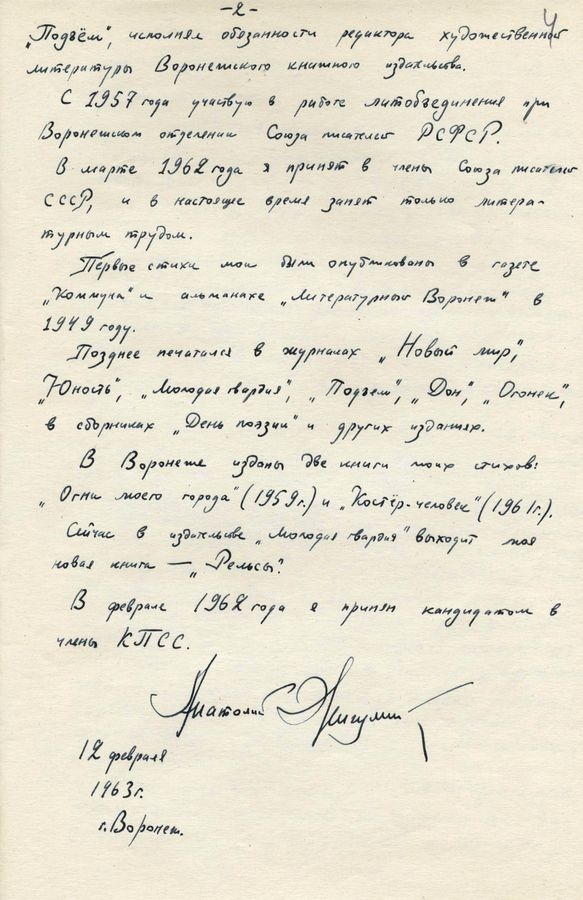 -2-
4
„Подъём", исполнял обязанности редактора художественной
литературы Воронежского книжного издательства.
С 1957 года участвую в работе литобъединения при
Воронежском отделении Союза писателей РСФСР.
В марте 1962 года я принят в члены Союза писателей
СССР, и в настоящее время занят только литера-
турным трудом.
Первые стихи мои были опубликованы в газете
„Коммуна" и альманахе „Литературный Воронеж" в
1949 году.
Позднее печатался в журналах „Новый мир",
„Юность", „Молодая гвардия", „Подъем", „Дон", „Огонек",
в сборниках „День поэзии" и других изданиях.
В Воронеже изданы две книги моих стихов:
„Огни моего города" (1959г.) и „Костёр-человек" (1961г.).
Сейчас в издательстве „Молодая гвардия" выходит моя
новая книга — „Рельсы".
В феврале 1962 года я принят кандидатом в
члены КПСС.
Анатолий Жигулин
12 февраля
1963г.
г. Воронеж.